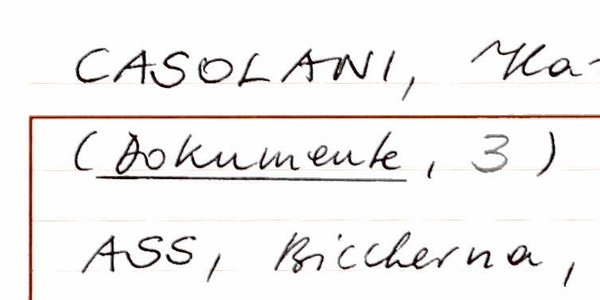 CASOLANI,
(Dokumente, 3)
ASS, Biccherna,